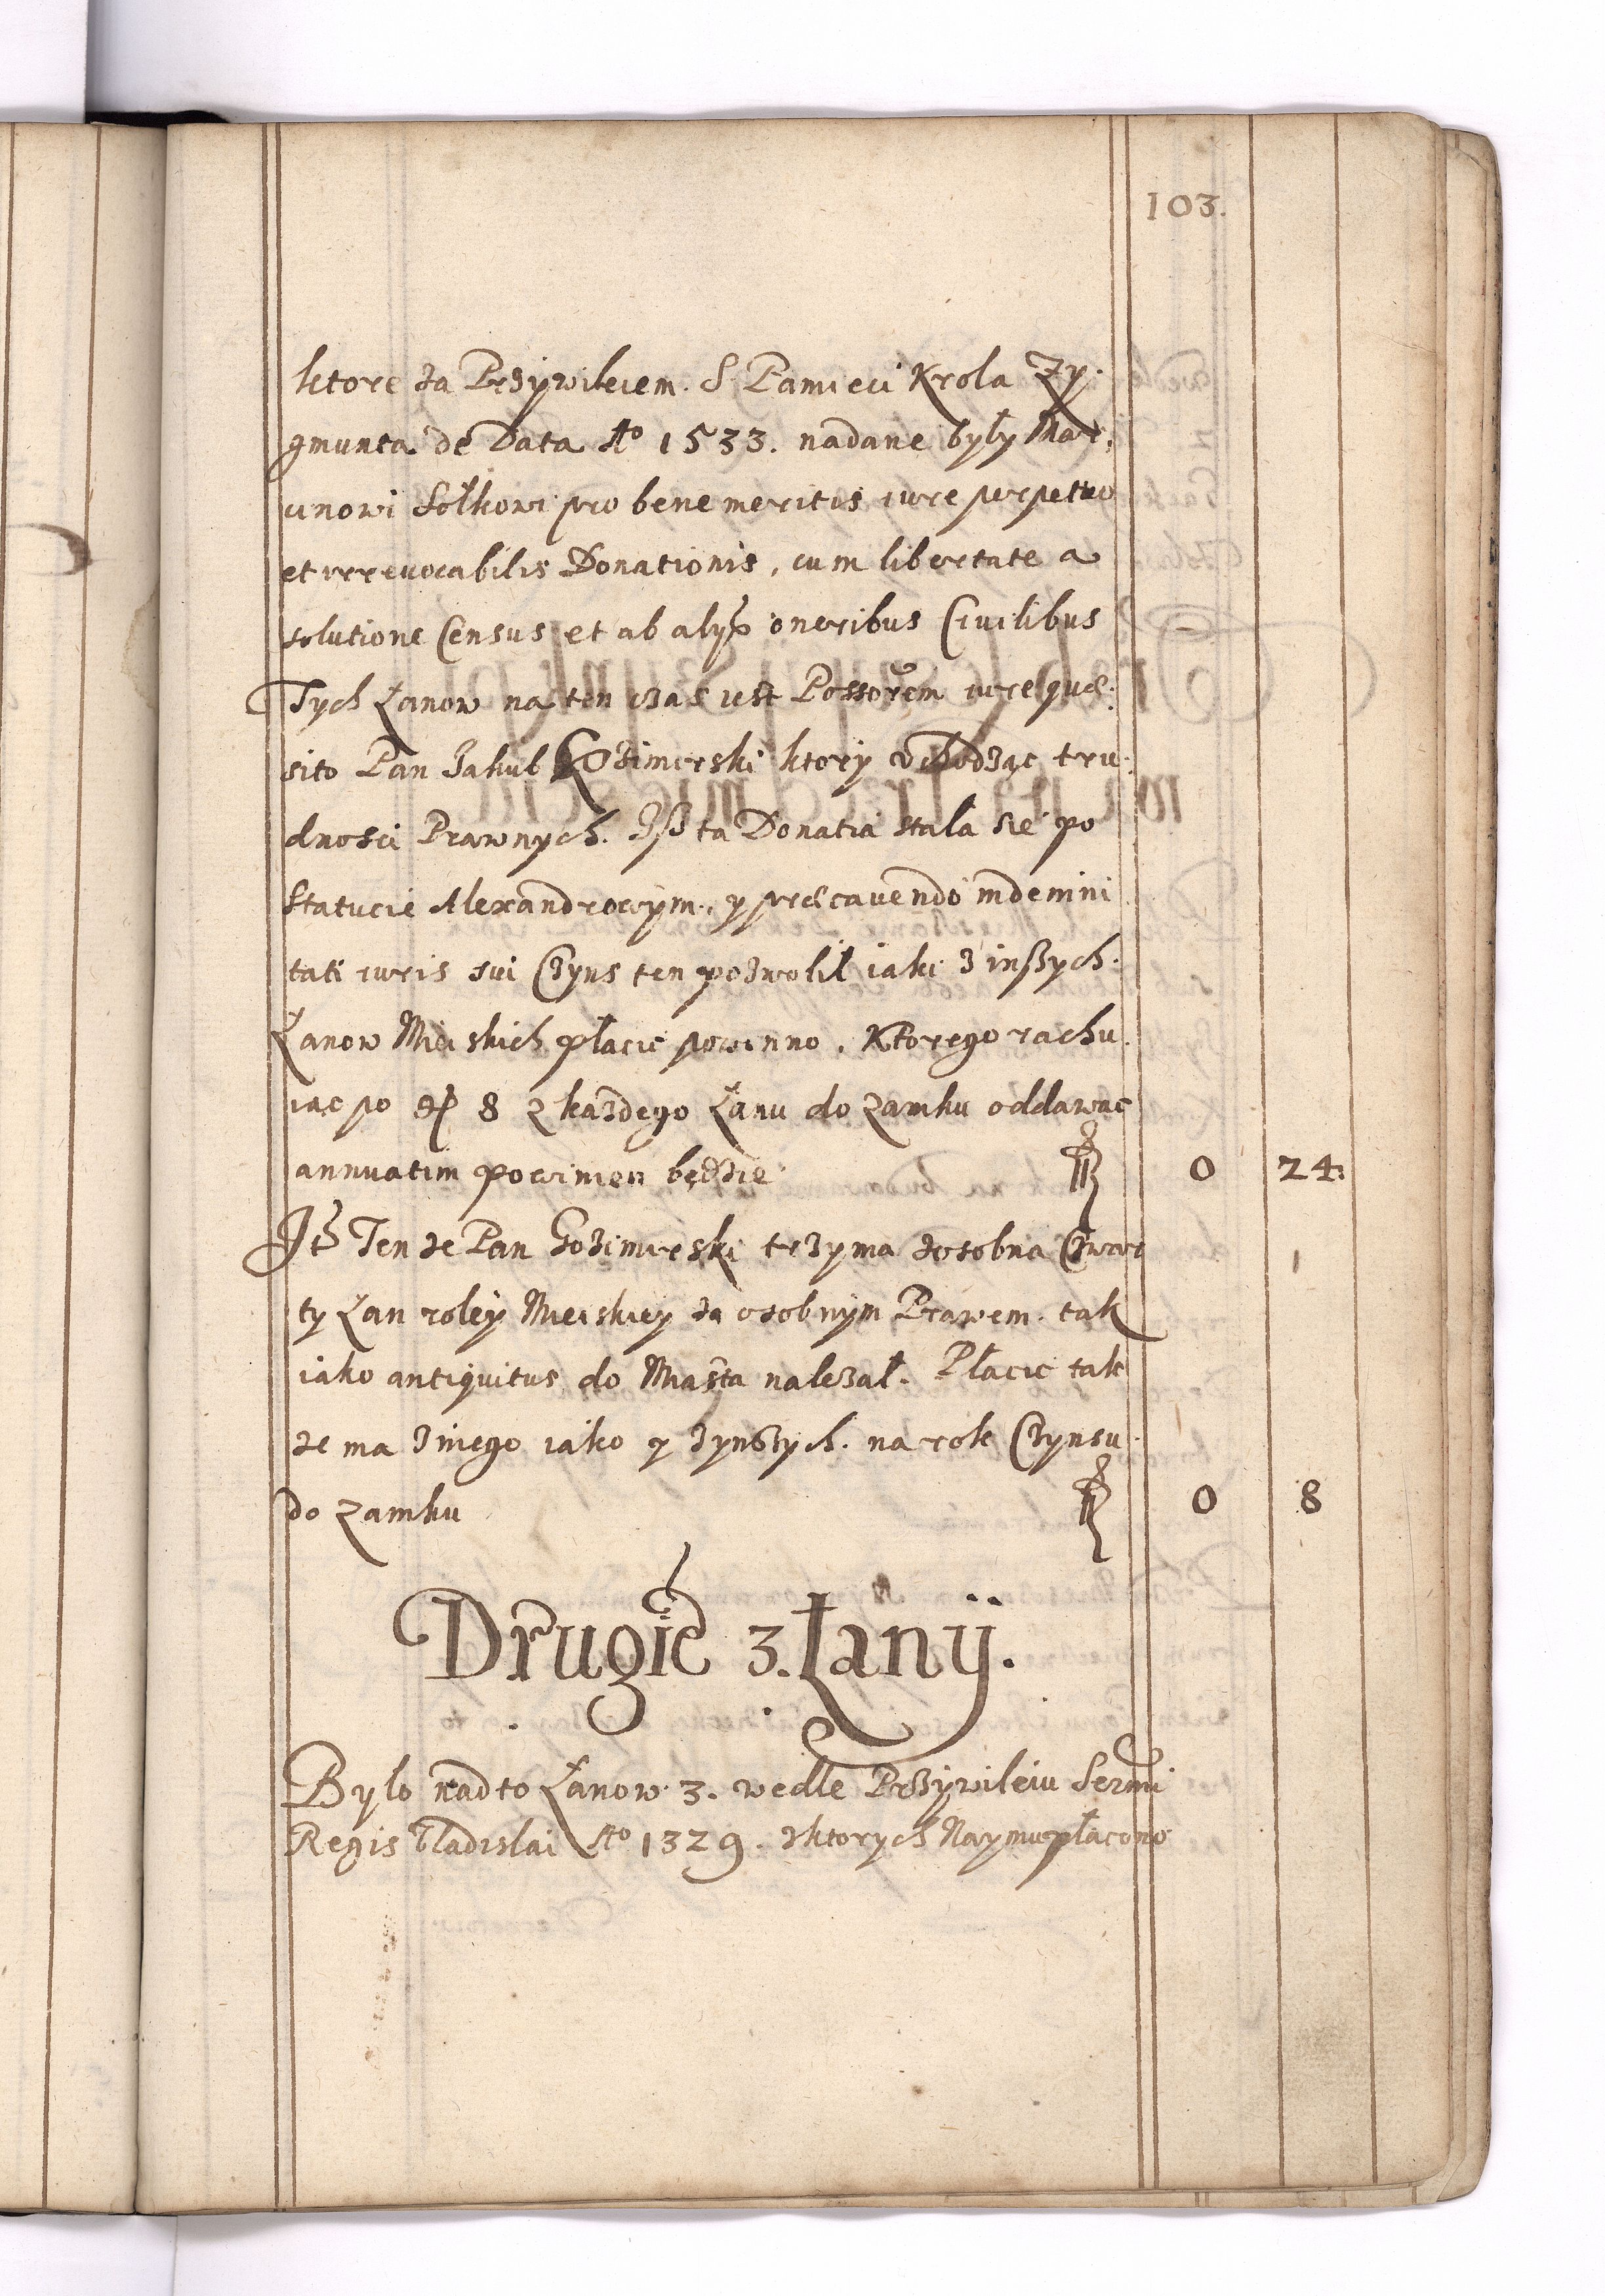 103.
ktore za Przywileiem. S. Pamieci Krola Zy.
gmunta de Data Ao 1533. nadane były Mar,
cinowi Sołkowi pro bene meritis iure perpetuo
et irreuocabilis Donationis, cum libertate a
solutione Census et ab alys oneribus Ciuilibus
Tych Łanow na ten czas iest Possorem iure quæ.
sito Pan Jakub Gozimirski ktory vchodząc tru.
dnosci Prawnych. Jß ta Donatia stala sie po
Statucie Alexandrowym, y præcauendo indemni
tati iuris sui Czyns ten pozwolil iaki z inßych.
Łanow Mieiskich płacic powinno. Ktorego rachu.
iąc po gr 8 z każdego Łanu do Zamku oddawac
annuatim powinien będzie fl 0 24.
Jtē Ten że Pan Gozimirski trzyma zosobna Czwar
ty Łan roley Mieiskiey za osobnym Prawem. tak
iako antiquitus do Miasta należał. Płacic tak
że ma z niego iako y z ynßych. na rok Czynsu.
do Zamku fl 0 8
Drugie 3. Łany.
Bylo nadto Łanow 3. wedle Przywileiu Sermi
Regis Vladislai Ao 1329. z ktorych Naymu płacono